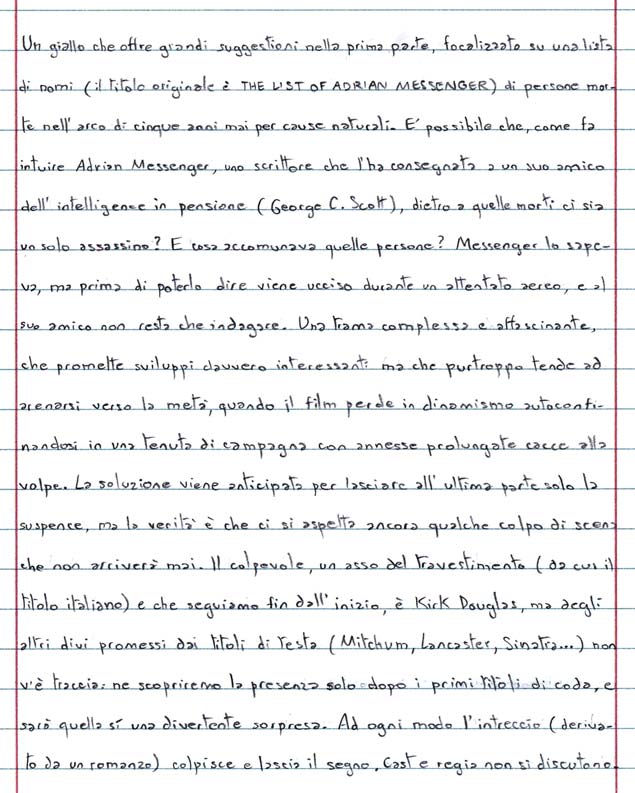 Un giallo che offre grandi suggestioni nella prima parte, focalizzato su una lista
di nomi (il titolo originale è THE LIST OF ADRIAN MESSENGER) di persone mor-
te nell'arco di cinque anni mai per cause naturali. E' possibile che, come fa
intuire Adrian Messenger, uno scrittore che l'ha consegnata a un suo amico
dell'intelligence in pensione (George C. Scott), dietro a quelle morti ci sia
un solo assassino? E cosa accomunava quelle persone? Messenger lo sape-
va, ma prima di poterlo dire viene ucciso durante un attentato aereo, e al
suo amico non resta che indagare. Una trama complessa e affascinante,
che promette sviluppi davvero interessanti ma che purtroppo tende ad
arenarsi verso la metà, quando il film perde in dinamismo autoconfi-
nandosi in una tenuta di campagna con annesse prolungate cacce alla
volpe. La soluzione viene anticipata per lasciare all'ultima parte solo la
suspence, ma la verità è che ci si aspetta ancora qualche colpo di scena
che non arriverà mai. Il colpevole, un asso del travestimento (da cui il
titolo italiano) e che seguiamo fin dall'inizio, è Kirk Douglas, ma degli
altri divi promessi dai titoli di testa (Mitchum, Lancaster, Sinatra...) non
v'è traccia: ne scopriremo la presenza solo dopo i primi titoli di coda, e
sarà quella sì una divertente sorpresa. Ad ogni modo l'intreccio (deriva-
to da un romanzo) colpisce e lascia il segno. Cast e regia non si discutono.